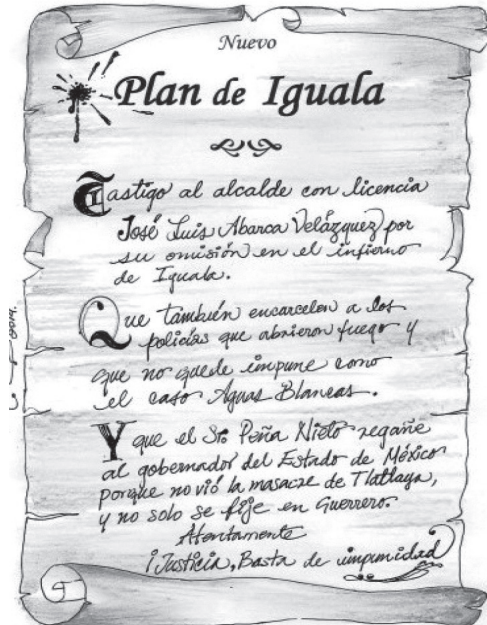 Nuevo
Plan de Iguala
Castigo al alcalde con licencia
José Luis Abarca Velázquez por
su omisión en el infierno
de Iguala.
Que también encarcelen a los
policías que abrieron fuego y
que no quede impune como
el caso Aguas Blancas.
Y que el Sr. Peña Nieto regañe
al gobernador del Estado de México
porque no vió la masacre de Tlatlaya,
y no solo se fije en Guerrero.
Atentamente
¡Justicia, Basta de impunidad